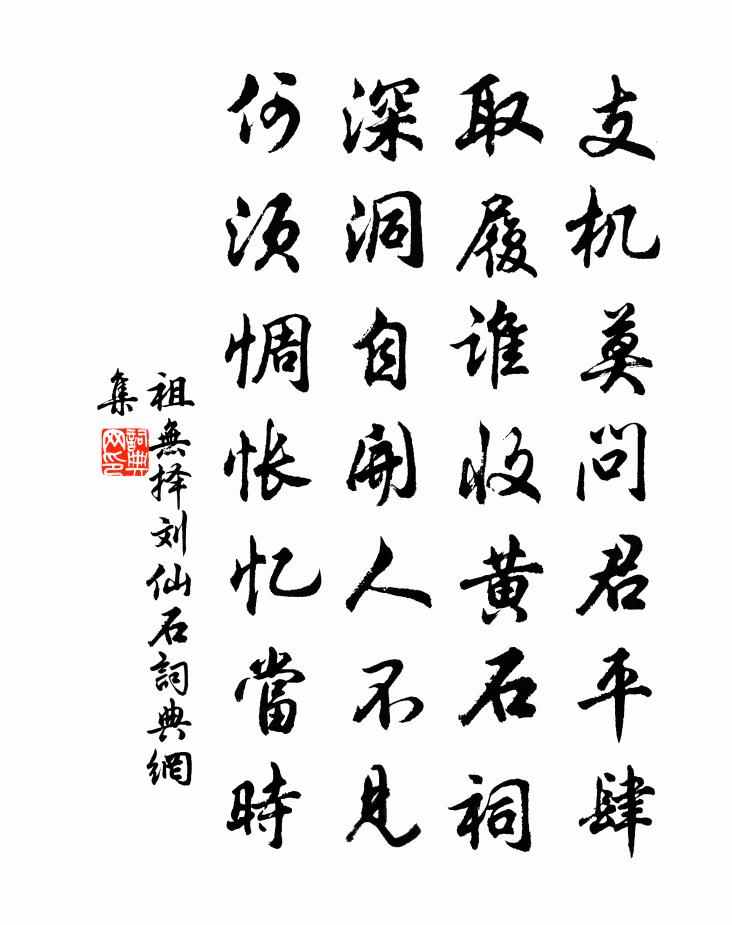 支机莫问君平肆
取履谁收黄石祠
深洞自開人不見
何须惆怅忆當時
祖無择刘仙石詞典網
集
詞典
网印